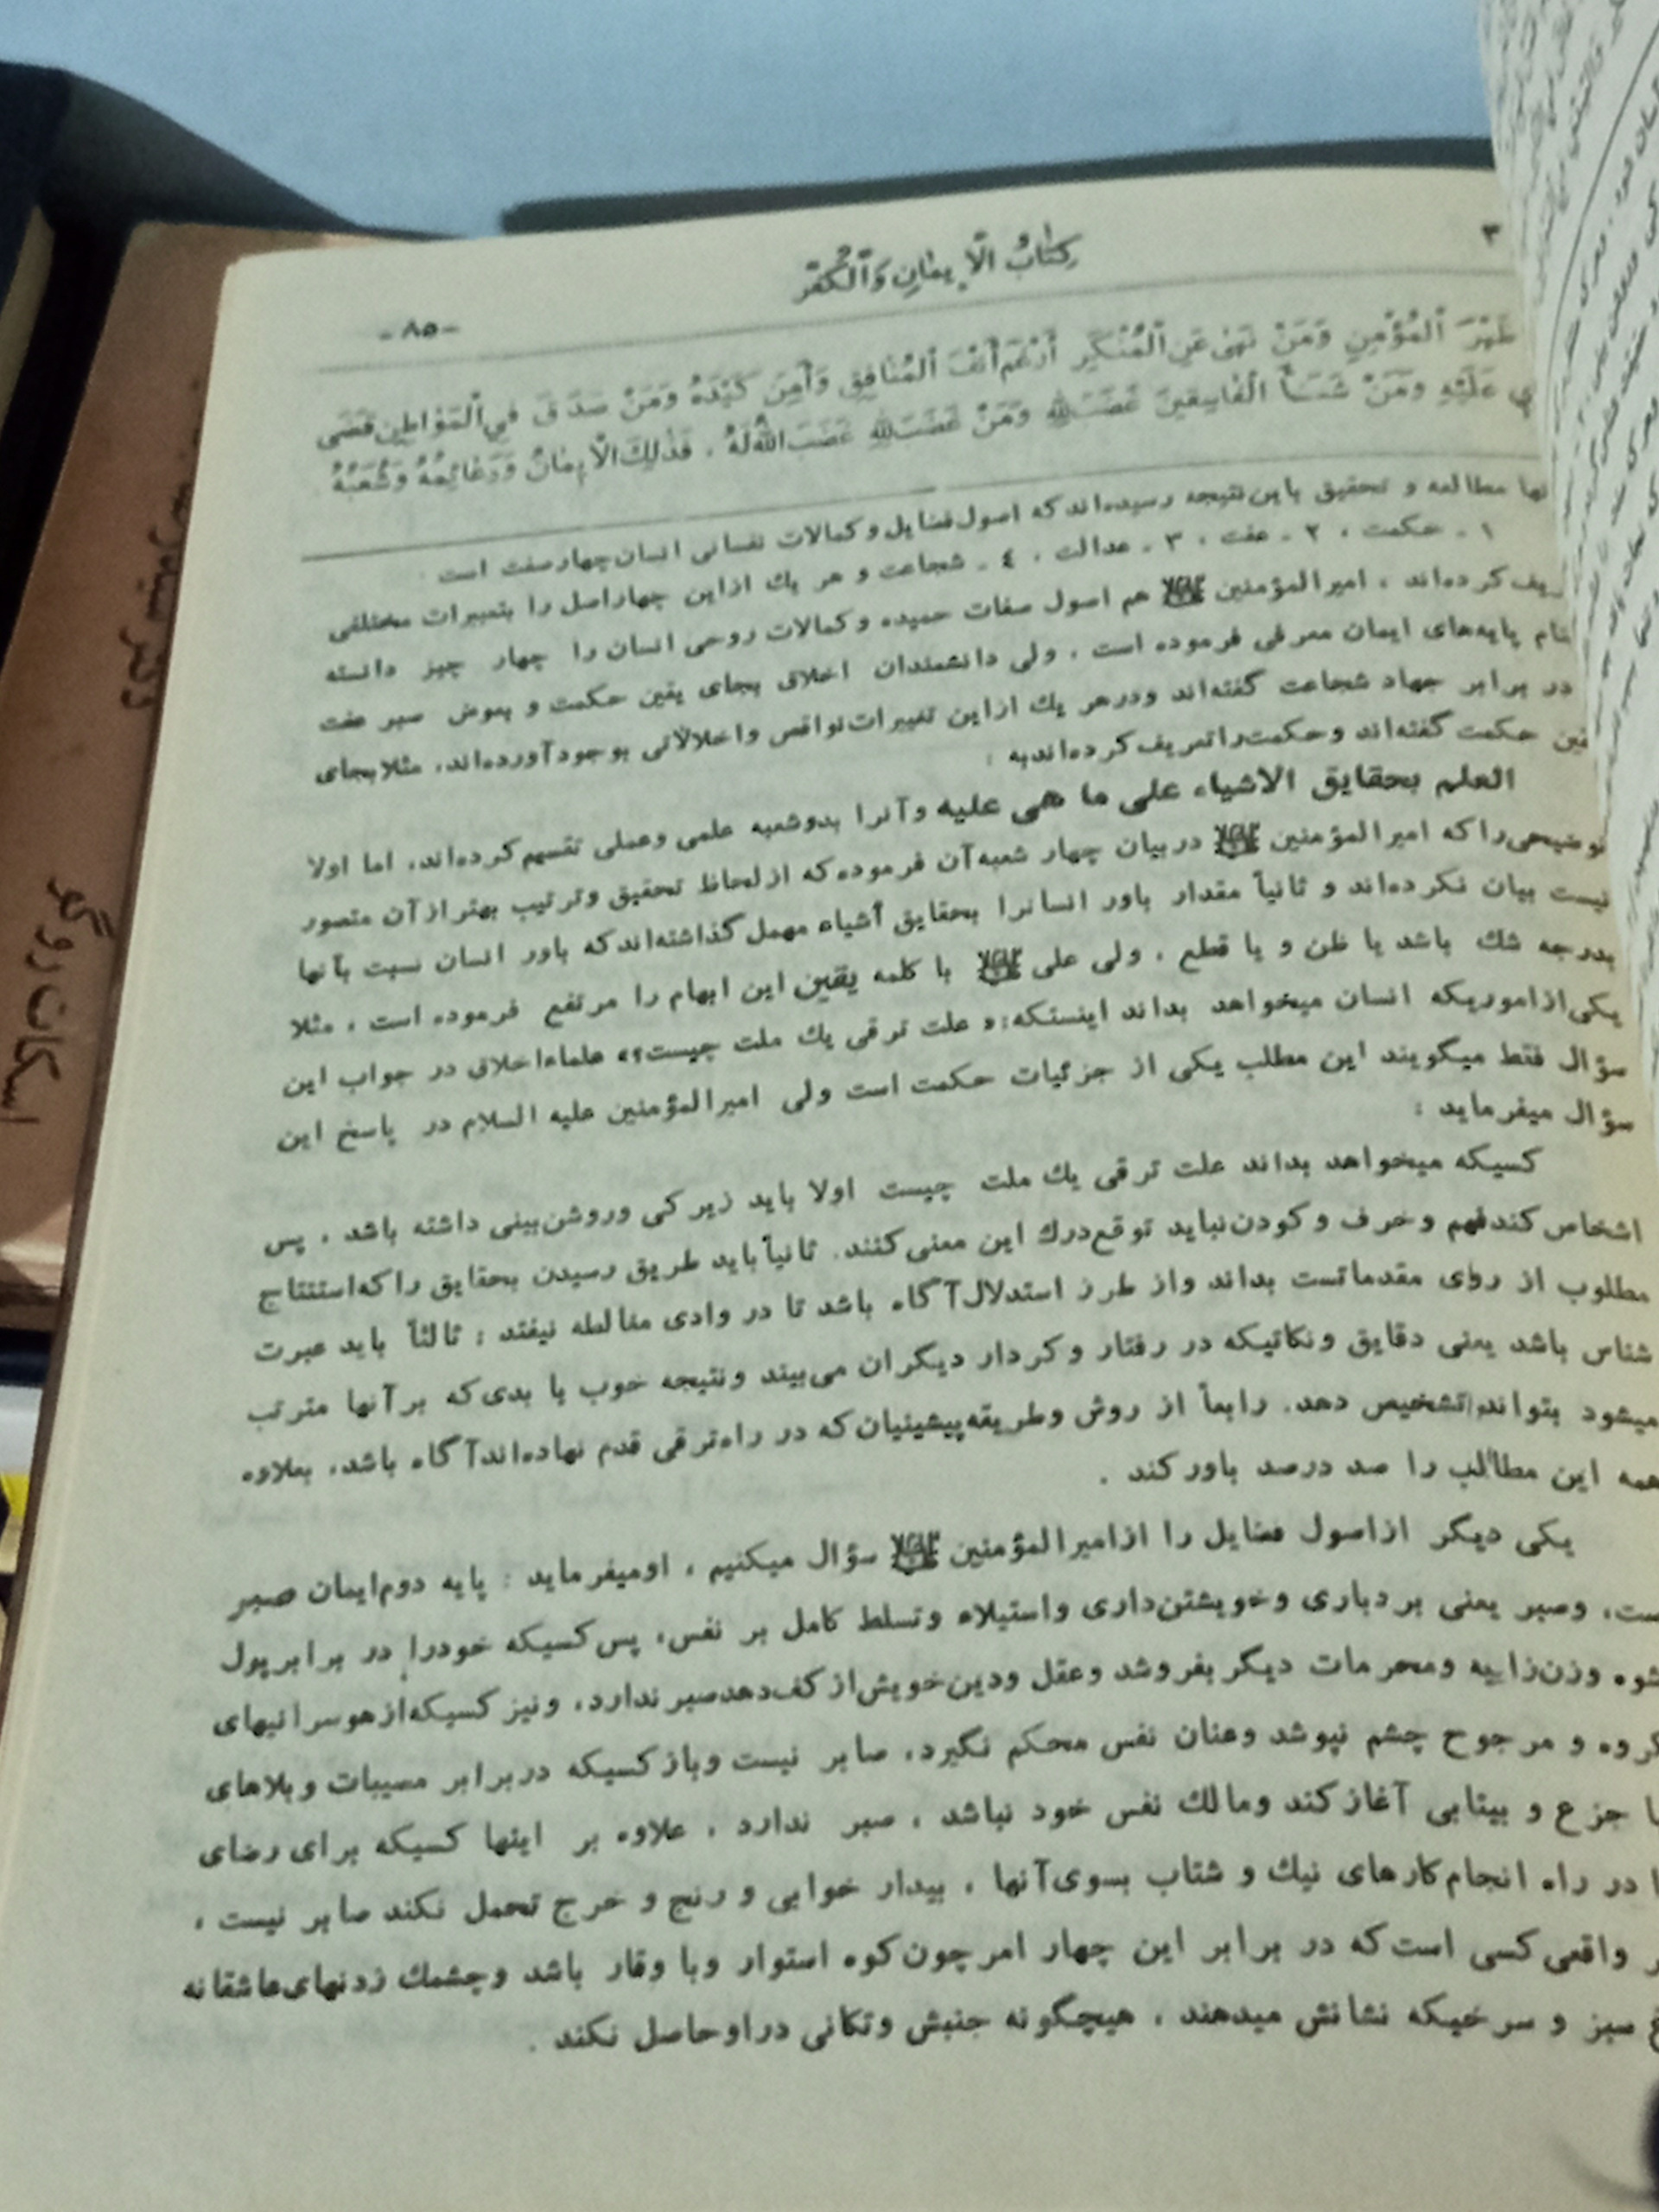 كِتٰابُ الْإِيمٰانِ وَالْكُفْرِ
۳
-۸۵-
ظَهْرَ الْمُؤْمِنِ وَمَنْ نَهىٰ عَنِ الْمُنْكَرِ أَرْغَمَ أَنْفَ الْمُنٰافِقِ وَأَمِنَ كَيْدَهُ وَمَنْ صَدَقَ فِي الْمَوٰاطِنِ قَضَى
عَلَيْهِ وَمَنْ شَنَأَ الْفٰاسِقِينَ غَضَبَ لِلّٰهِ وَمَنْ غَضَبَ لِلّٰهِ غَضَبَ اللّٰهُ لَهُ ، فَذٰلِكَ الْإِيمٰانُ وَدَعٰائِمُهُ وَشُعَبُهُ
مطالعه و تحقیق باین نتیجه رسیده‌اند که اصول فضایل و کمالات نفسانی انسان چهار صفت است .
۱ ـ حکمت ، ۲ ـ عفت ، ۳ ـ عدالت ، ٤ ـ شجاعت و هر یك از این چهار اصل را بتعبیرات مختلفی
کرده‌اند ، امیرالمؤمنین هم اصول صفات حمیده و کمالات روحی انسان را چهار چیز دانسته
پایه‌های ایمان معرفی فرموده است ، ولی دانشمندان اخلاق بجای یقین حکمت و بعوض صبر عفت
در برابر جهاد شجاعت گفته‌اند ودرهر یك ازاین تغییرات نواقص واخلالاتی بوجود آورده‌اند، مثلا بجای
حکمت گفته‌اند وحکمت را تعریف کرده‌اند به :
العلم بحقایق الاشیاء علی ما هی علیه وآنرا بدوشعبه علمی وعملی تقسیم کرده‌اند، اما اولا
توضیحی را که امیرالمؤمنین دربیان چهار شعبه آن فرموده که ازلحاظ تحقیق وترتیب بهتر از آن متصور
نیست بیان نکرده‌اند و ثانیاً مقدار باور انسانرا بحقایق أشیاء مهمل گذاشته‌اند که باور انسان نسبت بآنها
بدرجه شك باشد یا ظن و یا قطع ، ولی علی با کلمه یقین این ابهام را مرتفع فرموده است ، مثلا
یکی ازاموریکه انسان میخواهد بداند اینستکه: « علت ترقی یك ملت چیست؟» علماء اخلاق در جواب این
سؤال فقط میگویند این مطلب یکی از جزئیات حکمت است ولی امیرالمؤمنین علیه السلام در پاسخ این
سؤال میفرماید :
کسیکه میخواهد بداند علت ترقی یك ملت چیست اولا باید زیرکی وروشن‌بینی داشته باشد ، پس
اشخاص کندفهم و خرف و کودن نباید توقع درك این معنی کنند. ثانیاً باید طریق رسیدن بحقایق را که استنتاج
مطلوب از روی مقدماتست بداند واز طرز استدلال آگاه باشد تا در وادی مغالطه نیفتد ؛ ثالثاً باید عبرت
شناس باشد یعنی دقایق ونکاتیکه در رفتار وکردار دیگران می‌بیند ونتیجه خوب یا بدی که برآنها مترتب
میشود بتواند تشخیص دهد. رابعاً از روش وطریقه پیشینیان که در راه ترقی قدم نهاده‌اند آگاه باشد، بعلاوه
همه این مطالب را صد درصد باور کند .
یکی دیگر ازاصول فضایل را ازامیرالمؤمنین سؤال میکنیم ، اومیفرماید : پایه دوم ایمان صبر
ست، وصبر یعنی بردباری وخویشتن‌داری واستیلاء وتسلط کامل بر نفس، پس کسیکه خودرا در برابر پول
وزن زانیه ومحرمات دیگر بفروشد وعقل ودین خویش از کف دهد صبر ندارد، ونیز کسیکه از هوسرانیهای
و مرجوح چشم نپوشد وعنان نفس محکم نگیرد، صابر نیست وباز کسیکه دربرابر مصیبات وبلاهای
جزع و بیتابی آغاز کند ومالك نفس خود نباشد ، صبر ندارد ، علاوه بر اینها کسیکه برای رضای
در راه انجام کارهای نیك و شتاب بسوی آنها ، بیدار خوابی و رنج و خرج تحمل نکند صابر نیست ،
واقعی کسی است که در برابر این چهار امر چون کوه استوار وبا وقار باشد وچشمك زدنهای عاشقانه
سبز و سرخیکه نشانش میدهند ، هیچگونه جنبش وتکانی دراو حاصل نکند .